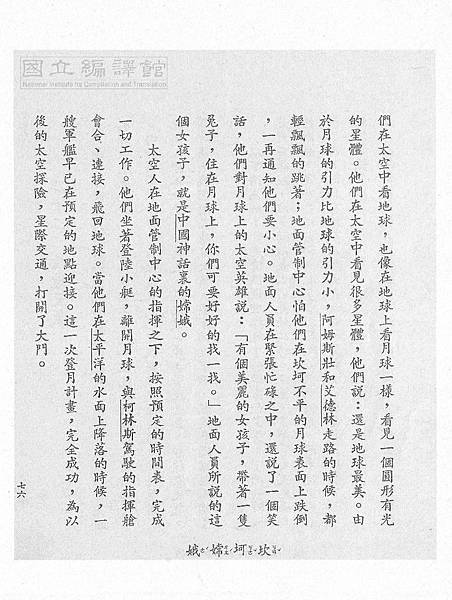 國立編譯館
National Institute for Compilation and Translation
們在太空中看地球，也像在地球上看月球一樣，看見一個圓形有光
的星體。他們在太空中看見很多星體，他們說：還是地球最美。由
於月球的引力比地球的引力小，阿姆斯壯和艾德林走路的時候，都
輕飄飄的跳著；地面管制中心怕他們在坎坷不平的月球表面上跌倒
，一再通知他們要小心。地面人員在緊張忙碌之中，還說了一個笑
話，他們對月球上的太空英雄說：「有個美麗的女孩子，帶著一隻
兔子，住在月球上，你們可要好好的找一找。」地面人員所說的這
個女孩子，就是中國神話裏的嫦娥。
太空人在地面管制中心的指揮之下，按照預定的時間表，完成
一切工作。他們坐著登陸小艇，離開月球，與柯林斯駕駛的指揮艙
會合、連接，飛回地球。當他們在太平洋的水面上降落的時候，一
艘軍艦早已在預定的地點迎接。這一次登月計畫，完全成功，為以
後的太空探險，星際交通，打開了大門。
七六
坎ㄎㄢˇ坷ㄎㄜˇ嫦ㄔㄤˊ娥ㄜˊ